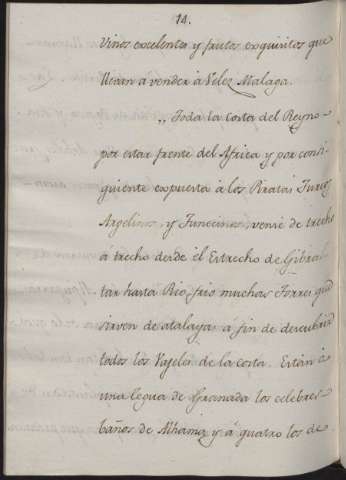 14.
Vinos excelentes y frutas exquisitas que
llevan á vender à Velez Malaga.
„ Toda la costa del Reyno
por estar frente del Africa y por consi-
guiente expuesta à los Piratas Turcos
Argelinos, y Tunecinos, vense de trecho
á trecho desde el Estrecho de Gibral-
tar hasta Rio frio muchas Torres que
sirven de atalayas á fin de descubrir
todos los Vajeles de la costa. Están à
una legua de Granada los celebres
baños de Alhama y á quatro los de